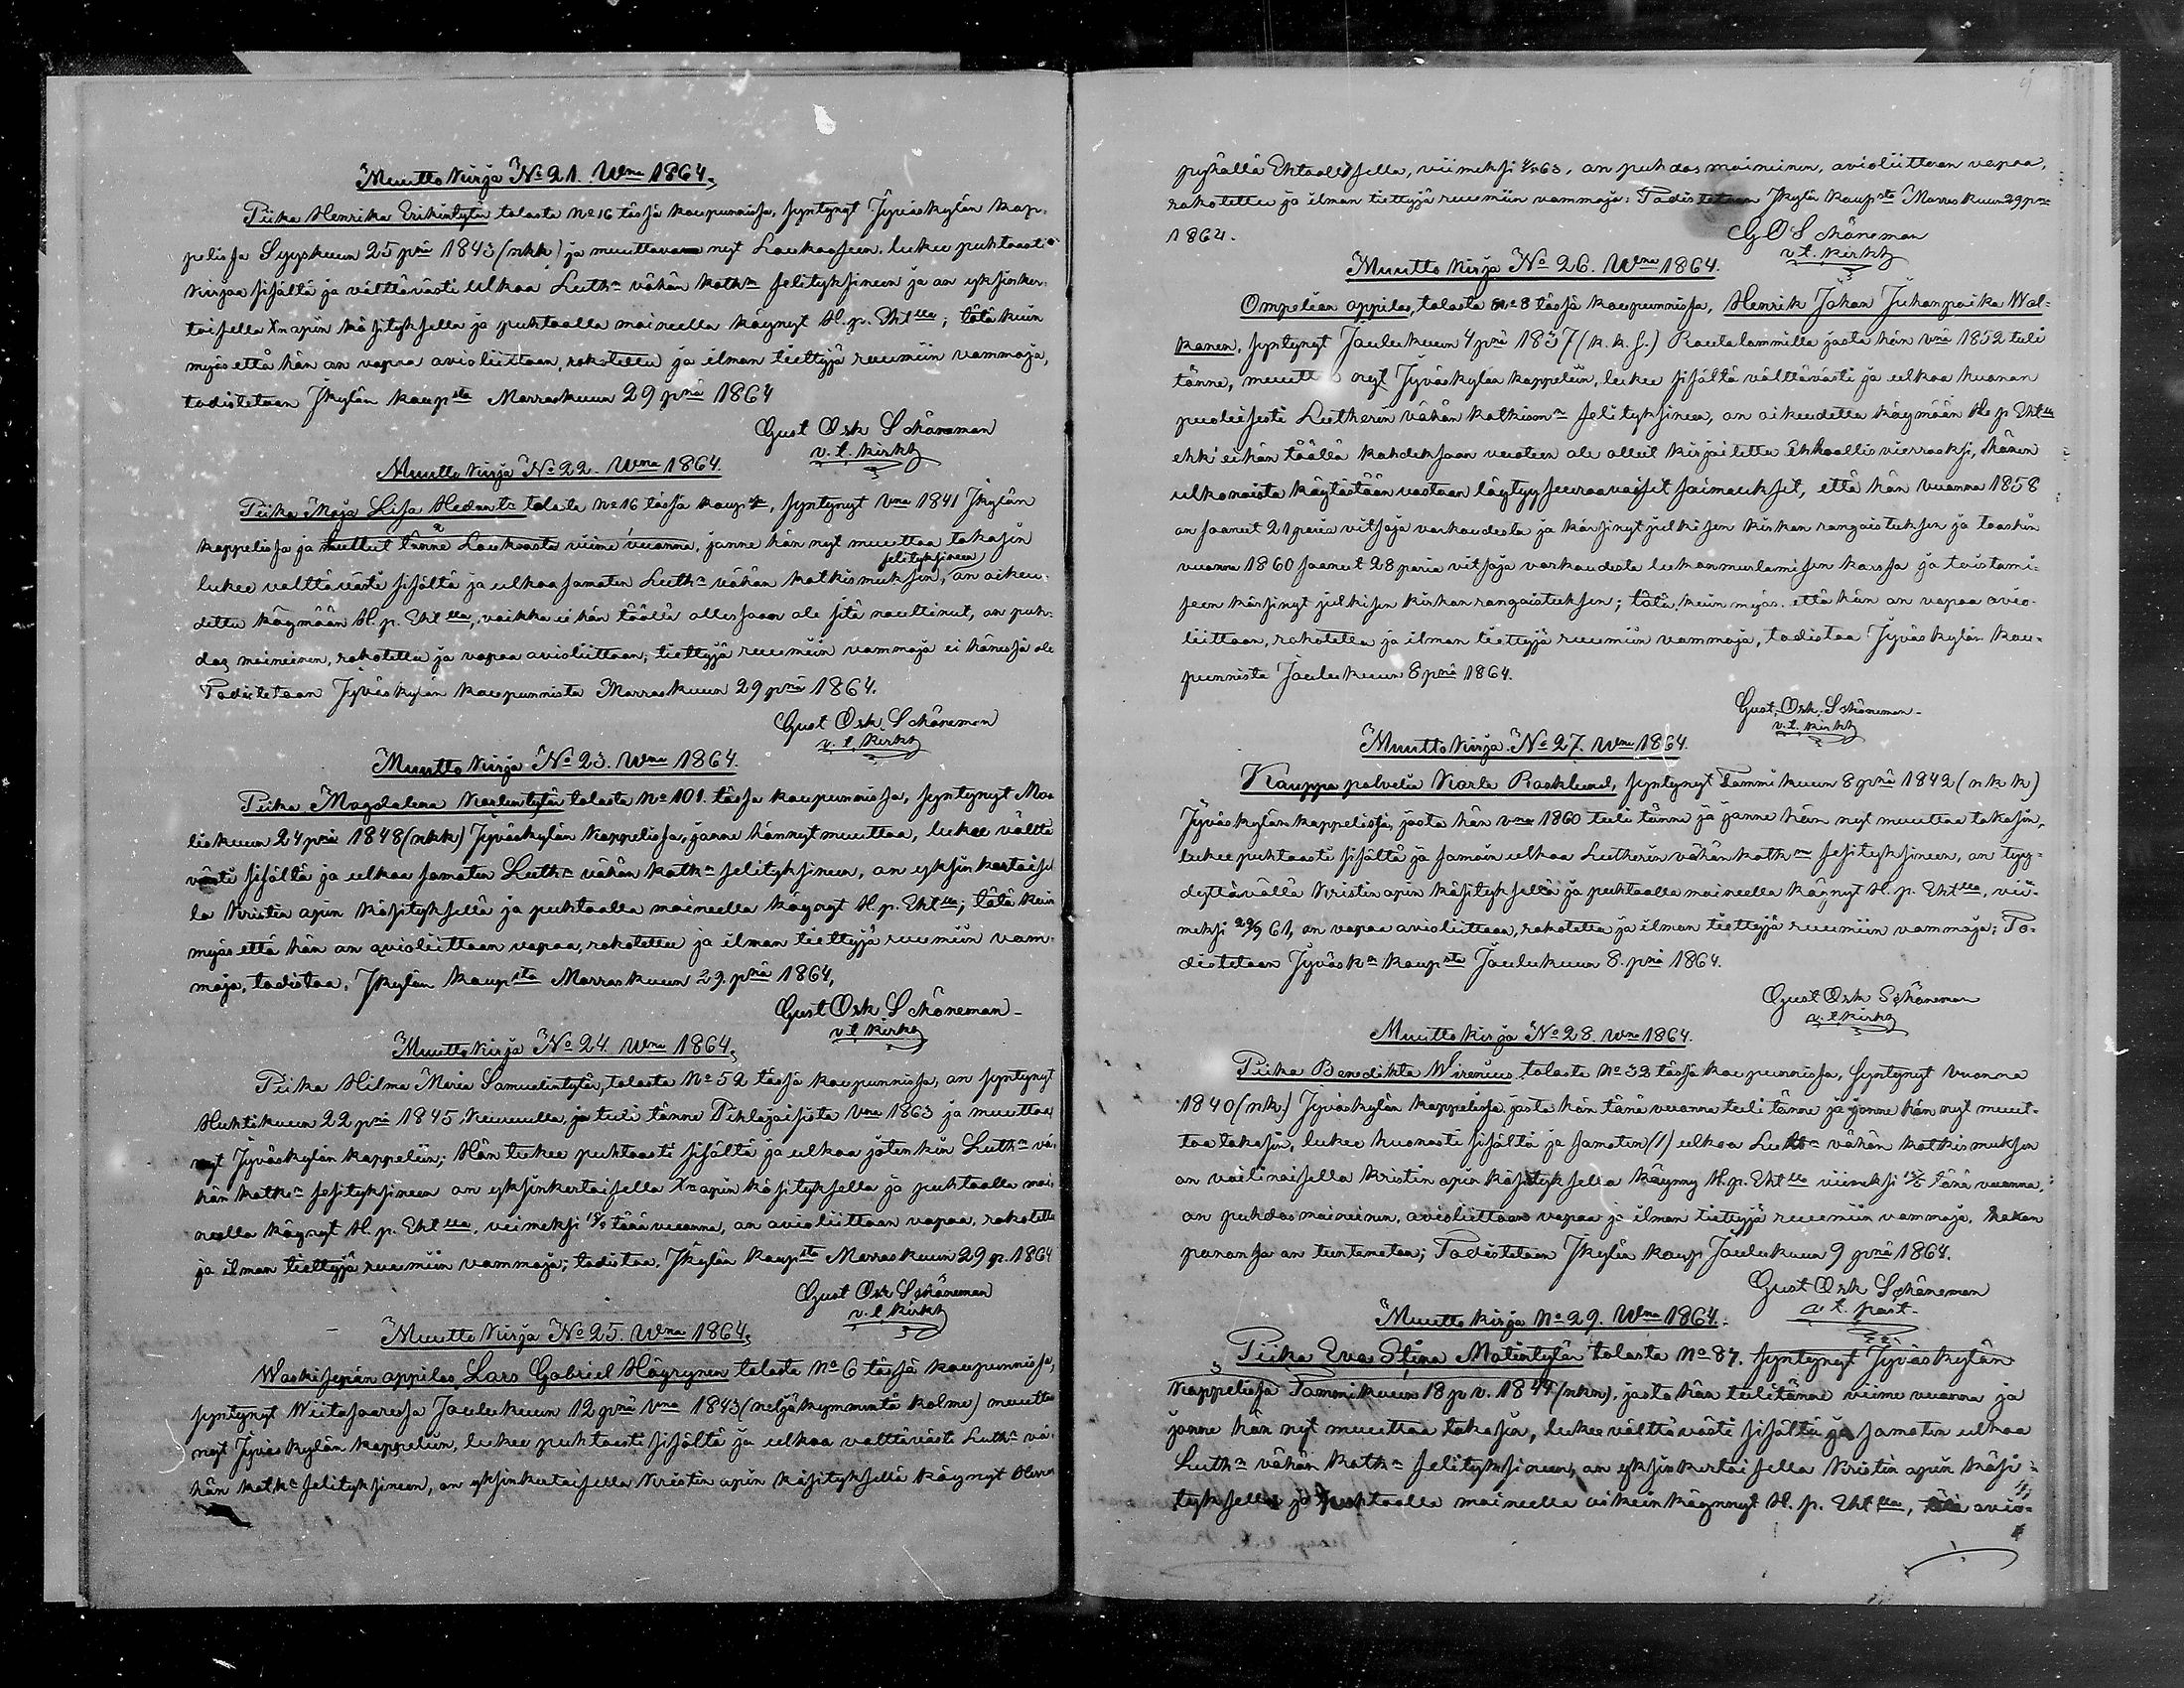 Muutto Kirja No 21. Wna 1864.
Piika Henrika Erikintytär talosta No 16 tässä kaupunnissa, syntynyt Jyväskylän kap-
pelissa Syyskuun 25 pnä 1843 (nkk) ja muuttava nyt Laukaaseen, lukee puhtaasti
Kirjaa sisältä ja välttävästi ulkoa Luthn vähän kathn selityksineen ja on yksinker-
taisella Xn opin käsityksellä ja puhtaalla maineella käynyt H. p. Ehtlla; tätä kuin
myös että hän on vapaa avioliittoon, rokotettu ja ilman tiettyjä ruumiin vammoja,
todistetaan Jkylän kaupsta Marraskuun 29 pnä 1864
Gust Osk Schöneman
v. t. kirkh
Muutto Kirja No 22. Wna 1864.
Piika Maja Lisa Hedman talosta No 16 tässä kaupsa, syntynyt Vna 1841 Jkylän
kappelissa ja muttut tänne Laukaasta viime vuonna, janne hän nyt muuttaa takasin
selityksineen
lukee välttävästi sisältä ja ulkoa samaten Luthn vähän katkismuksen, on oikeu-
dettu käymään H. p. Ehtlla, vaikka ei hän täällä ollessaan ole sitä nauttinut, on puh-
das maineinen, rokotettu ja vapaa avioliittoon; tiettyjä ruumiin vammoja ei hänessä ole
Todistetaan Jyväskylän kaupunnista Marraskuun 29 pnä 1864.
Gust Osk Schöneman
v. t. kirkh
Muutto Kirja No 23. Wna 1864.
Piika Magdalena Kaarlentytär talosta No 101. tässä kaupunnissa, syntynyt Maa
liskuun 24 pnä 1848 (nkk) Jyväskylän Kappelissa, janne hän nyt muuttaa, lukee välttä
västi sisältä ja ulkoa samaten Luthn vähän kathn selityksineen, on yksinkertaisel
la Kristin opin käsityksellä ja puhtaalla maineella käynyt H. p. Ehtlla; tätä kuin
myös että hän on avioliittoon vapaa, rokotettu ja ilman tiettyjä ruumiin vam-
moja, todistaa, Jkylän kaupsta Marraskuun 29. pnä 1864,
Gust Osk Schöneman
v. t. kirkh
Muutto Kirja No 24. Wna 1864.
Piika Hilma Maria Samuelintytär, talosta No 52 tässä kaupunnissa, on syntynyt
Huhtikuun 22 pnä 1845 Keuruulla, ja tuli tänne Pihlajaisista Vna 1863 ja muuttaa
nyt Jyväskylän kappeliin; Hän lukee puhtaasti sisältä ja ulkoa jotenkin Luthn vä-
hän kathn selityksineen on yksinkertaisella Xn opin käsityksellä ja puhtaalla mai-
neella käynyt H. p. Ehtlla, viimeksi tänä vuonna, on avioliittoon vapaa, rokotettu
ja ilman tiettyjä ruumiin vammoja; todistaa, Jkylän kaupsta Marraskuun 29 p. 1864
Gust Osk Schöneman
v. t. kirkh
Muutto Kirja No 25. Wna 1864.
Waskisepän oppilas, Lars Gabriel Häyrynen talosta No 6 tässä kaupunnissa,
syntynyt Wiitasaaressa Joulukuun 12 pnä Vna 1843 (neljäkymmintä kolme) muuttaa
nyt Jyväskylän kappeliin, lukee puhtaasti sisältä ja ulkoa välttävästi Luthn vä-
hän kathn selityksineen, on yksinkertaisella Kristin opin käsityksellä käynyt Herran
pyhällä Ehtoollisella, viimeksi 63, on puhdas maineinen, avioliittoon vapaa,
rokotettu ja ilman tiettyjä ruumiin vammoja: Todistetaan Jkylän kaupsta Marraskuun 29 pnä
1864.
G O Schöneman
v. t. kirkh
Muutto Kirja No 26. Wna 1864.
Ompelian oppilas, talosta No 8 tässä kaupunnissa, Henrik Johan Juhanpoika Wal-
konen, syntynyt Joulukuun 4 pnä 1837 (k. k. s.) Rautalammilla josta hän vna 1852 tuli
tänne, muutt nyt Jyväskylän kappeliin, lukee sisältä välttävästi ja ulkoa huonon
puolisesti Lutherin vähän katkismn selityksineen, on oikeudettu käymään H. p. Ehtlla
ehk' ei hän täällä kahdeksaan vuoteen ole ollut kirjoitettu ehtoollis vieraaksi, hänen
ulkonaista käytöstään vastaan löytyy seuraavaiset saimaukset, että hän vuonna 1858
on saanut 21 paria vitsoja varkaudesta ja kärsinyt julkisen kirkon rangaistuksen ja taaskin
vuonna 1860 saanut 28 paria vitsoja varkaudesta lukonmurtamisen kanssa ja toistami-
seen kärsinyt julkisen kirkonrangaistuksen; tätä, kuin myös, että hän on vapaa avio-
liittoon, rokotettu ja ilman tiettyjä ruumiin vammoja, todistaa Jyväskylän kau-
punnista Joulukuun 8 pnä 1864.
Gust. Osk. Schöneman
v. t. kirkh
Muutto Kirja No 27. Wna 1864.
Kauppa palvelia Karle Rasklund, syntynyt Tammikuun 8 pnä 1842 (nkk)
Jyväskylän kappelissa, josta hän vna 1860 tuli tänne ja janne hän nyt muuttaa takasin,
lukee puhtaasti sisältä ja samoin ulkoa Lutherin vähän kathn selityksineen, on tyy-
dyttävällä Kristin opin käsityksellä ja puhtaalla maineella käynyt H. p. Ehtlla, vii-
meksi 29/9 61, on vapaa avioliittoon, rokotettu ja ilman tiettyjä ruumiin vammoja; To-
distetaan Jyväskn kaupsta Joulukuun 8. pnä 1864.
Gust Osk Schöneman
v. t. kirkh
Muutto kirja No 28. Wna 1864.
Piika Benedikta Wirenius talosta No 32 tässä kaupunnissa, syntynyt vuonna
1840 (nk.) Jyväskylän kappelissa josta hän tänä vuonna tuli tänne ja janne hän nyt muut-
taa takasin, lukee huonosti sisältä ja samaten (!) ulkoa Luthn vähän katkismuksen
on vaillinaisella kristin opin käsityksellä käynny H. p. Ehtlla viimeksi tänä vuonna,
on puhdas maineinen, avioliittoon vapaa ja ilman tiettyjä ruumiin vammoja. Rokon
panonsa on tuntematon; Todistetaan Jkylän kaup Joulukuun 9 pnä 1864.
Gust Osk Schöneman
v. t. past.
Muutto kirja No 29. Wna 1864.
Piika Eva Stina Matintytär talosta No 87. syntynyt Jyväskylän
Kappelissa Tammikuun 18 p v. 1844 (nkn), josta hän tuli tänne viime vuonna ja
janne hän nyt muuttaa takasin, lukee välttävästi sisältä ja samaten ulkoa
Luthn vähän kathn selityksineen, on yksinkertaisella Kristin opin käsi-
tyksellä ja puhtaalla maineella oikein käynnyt H. p. Ehtlla, avio-